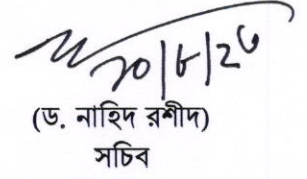 ২০/৮/২৩
(ড. নাহিদ রশীদ)
সচিব